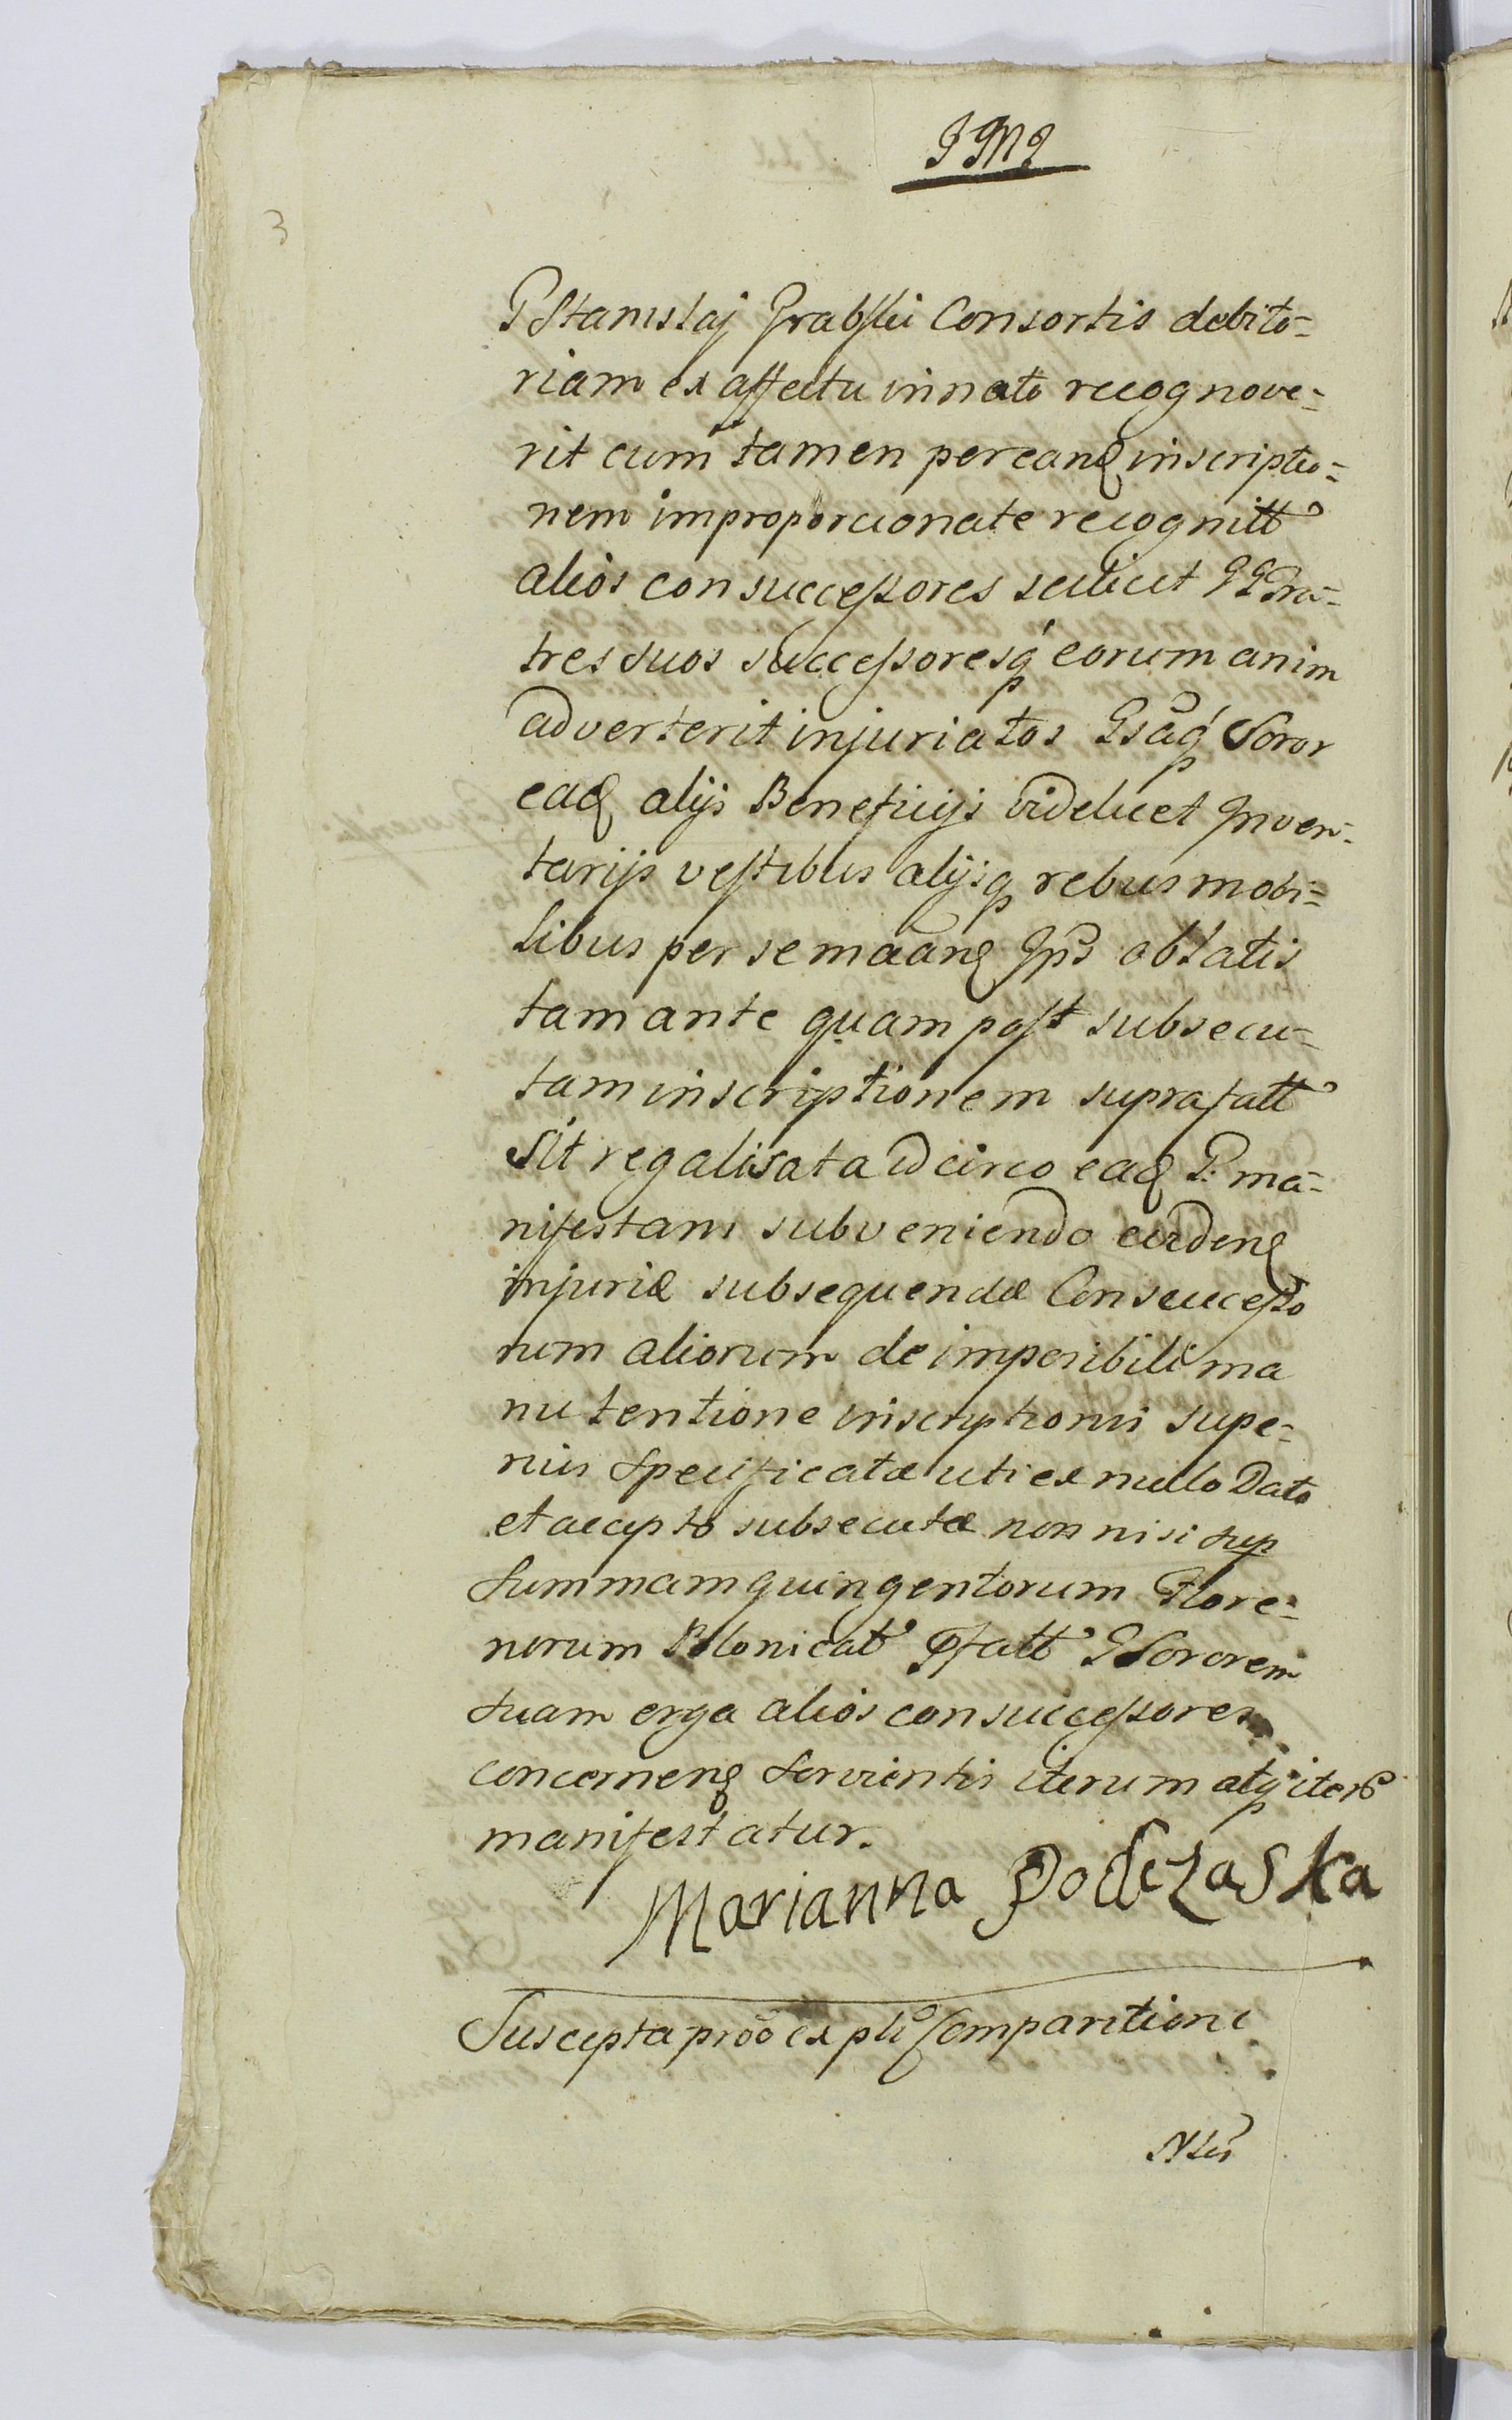 3
G Stanislaj Grabski Consortis debito-
riam ex affectu innato recognove-
rit cum tamen per eand inscriptio-
nem improporcionate recognitt
alios consuccessores scilicet GG Fra-
tres suos successoresq eorum anim
adverterit injuriatos Gsaq Soror
ead alijs Beneficijs videlicet Inven-
tarijs vestibus alijsq rebus mobi-
libus per se maand Ips oblatis
tam ante quam post subsecu-
tam inscriptionem suprafatt
sit regalisata idcirco ead P. ma-
nifestans subveniendo eidend
injuriæ subsequendæ Consuccesso
rum aliorum de imposibili ma
nutentione inscriptionis supe-
rius specificatæ uti ex nullo Dato
et accepto subsecutæ non nisi sup
summam quingentorum Flore-
norum Polonicalt Pfatt G Sororem
suam erga alios consuccessores
concernend servientis iterum atq iter
manifestatur.
Marianna Podczaska
Suscepta pro ex pli Comparitione